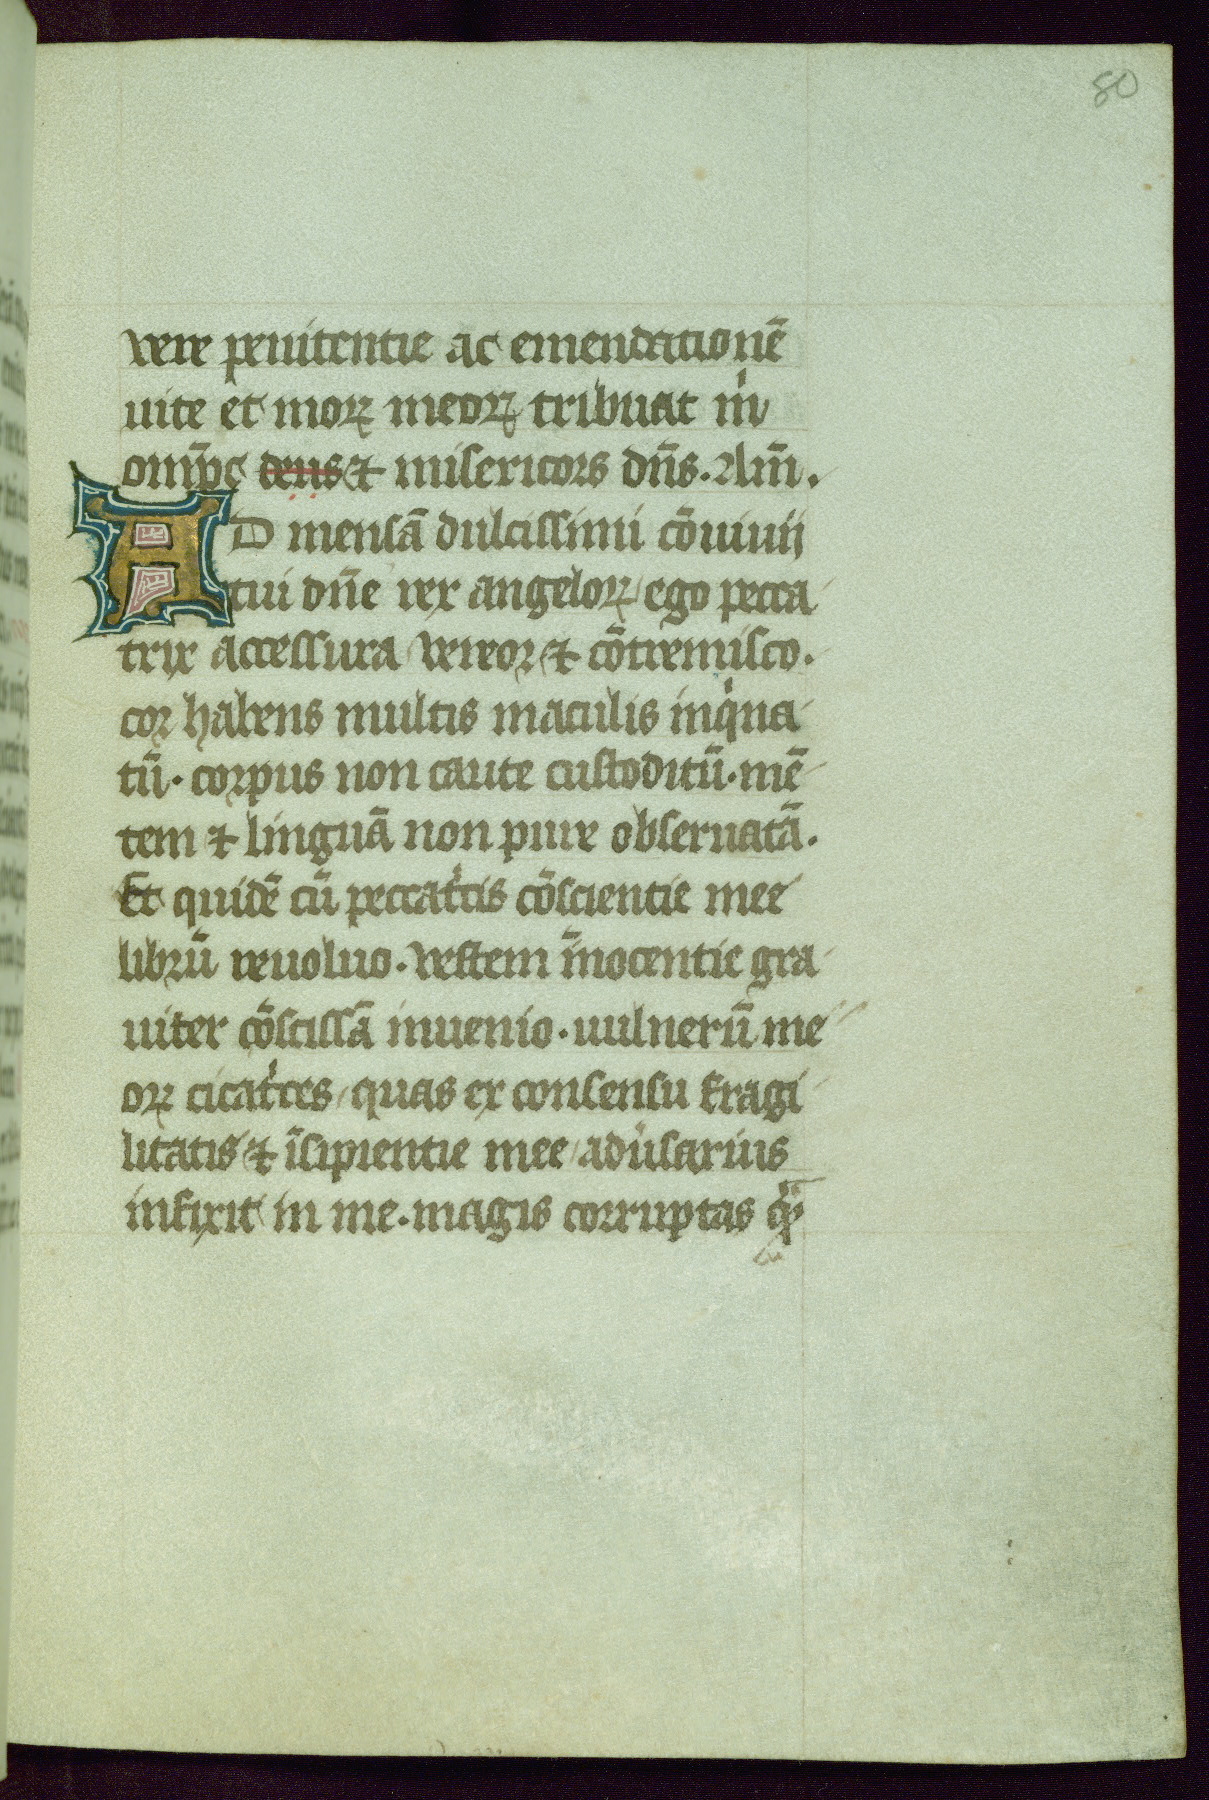 80
vere penitentie ac emendationē
uite et moꝝ meoꝝ tribuat m̍
omp̄c deus ⁊ misericors dn̄s. Am̄.
AD mensā dulcissimi cōuiuij
tui dn̄e rex angeloꝝ ego pecca
trix accessura vereor ⁊ cōtremisco.
cor habens multis maculis inq̍na
tū. corpus non caute custoditū. mē
tem ⁊ linguā non pure obseruatā.
Et quidē cū peccat̍cis cōscientie mee
librū reuoluo. vestem īnocentie gra
uiter cōscissā inuenio. uulnerū me
oꝝ cicat̍ces quas ex consensu fragi
litatis ⁊ īsipientie mee adūsarius
infixit in me. magis corruptas